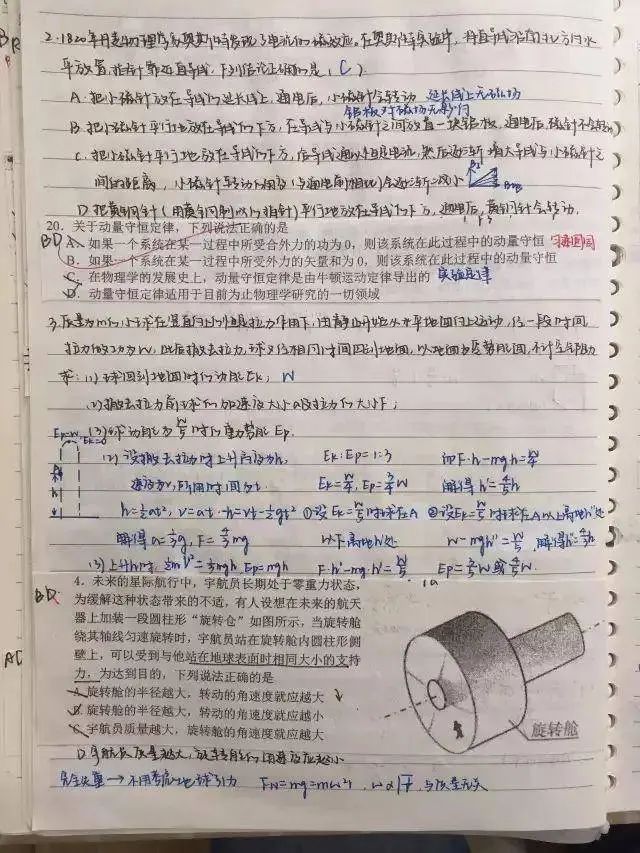 2. 1820年丹麦物理学家奥斯特发现了电流的磁效应。在奥斯特实验中，将直导线沿南北方向水
平放置，指针靠近直导线，下列结论正确的是（C）
A. 把小磁针放在导线的延长线上，通电后，小磁针会转动 延长线上无磁场
铝板对磁场无影响
B. 把小磁针平行地放在导线的下方，在导线与小磁针之间放置一块铝板，通电后，磁针不会转动
C. 把小磁针平行地放在导线的下方，给导线通以恒定电流，然后逐渐增大导线与小磁针之
间的距离，小磁针转动的角度（与通电前相比）会逐渐减小
D. 把黄铜针（用黄铜制成的指针）平行地放在导线的下方，通电后，黄铜针会转动
20. 关于动量守恒定律，下列说法正确的是
BD A. 如果一个系统在某一过程中所受合外力的功为0，则该系统在此过程中的动量守恒
B. 如果一个系统在某一过程中所受外力的矢量和为0，则该系统在此过程中的动量守恒
C. 在物理学的发展史上，动量守恒定律是由牛顿运动定律导出的 实验定律
D. 动量守恒定律适用于目前为止物理学研究的一切领域
3. 质量为m的小球在竖直向上的恒定拉力作用下，由静止开始从水平地面向上运动，经一段时间
拉力做功为W，此后撤去拉力，球又经相同时间回到地面，以地面为零势能面，不计空气阻力
求：(1) 球回到地面时的动能Ek； W
(2) 撤去拉力前球的加速度大小a及拉力的大小F；
(3) 球动能为W/5时的重力势能Ep.
Ep=W Ek=0
(2) 设撤去拉力时上升高度为h， Ek:Ep=1:3 即F·h-mgh=W/4
速度为v，所用时间为t. Ek=W/4, Ep=3/4W 解得h'=4/5h
h=½at², v=at -h=vt-½gt² ①设Ek=W/5时球在A ②设Ek=W/5时球在A以上离地h'处
解得a=⅓g, F=4/3mg 以下离地h'处 W-mgh''=W/5 解得h''
(3) 上升h时 ½mv²=⅓mgh, Ep=mgh F·h'-mg·h'=W/5 Ep=3/5W或4/5W.
4. 未来的星际航行中，宇航员长期处于零重力状态，
BD
为缓解这种状态带来的不适，有人设想在未来的航天
器上加装一段圆柱形“旋转仓”如图所示，当旋转舱
绕其轴线匀速旋转时，宇航员站在旋转舱内圆柱形侧
壁上，可以受到与他站在地球表面时相同大小的支持
力，为达到目的，下列说法正确的是
A. 旋转舱的半径越大，转动的角速度就应越大
B. 旋转舱的半径越大，转动的角速度就应越小
C. 宇航员质量越大，旋转舱的角速度就应越大
旋转舱
D. 宇航员质量越大，旋转舱的角速度应越小
完全失重→不用考虑地球引力 FN=mg=mω²r, ω∝√1/r, 与质量无关